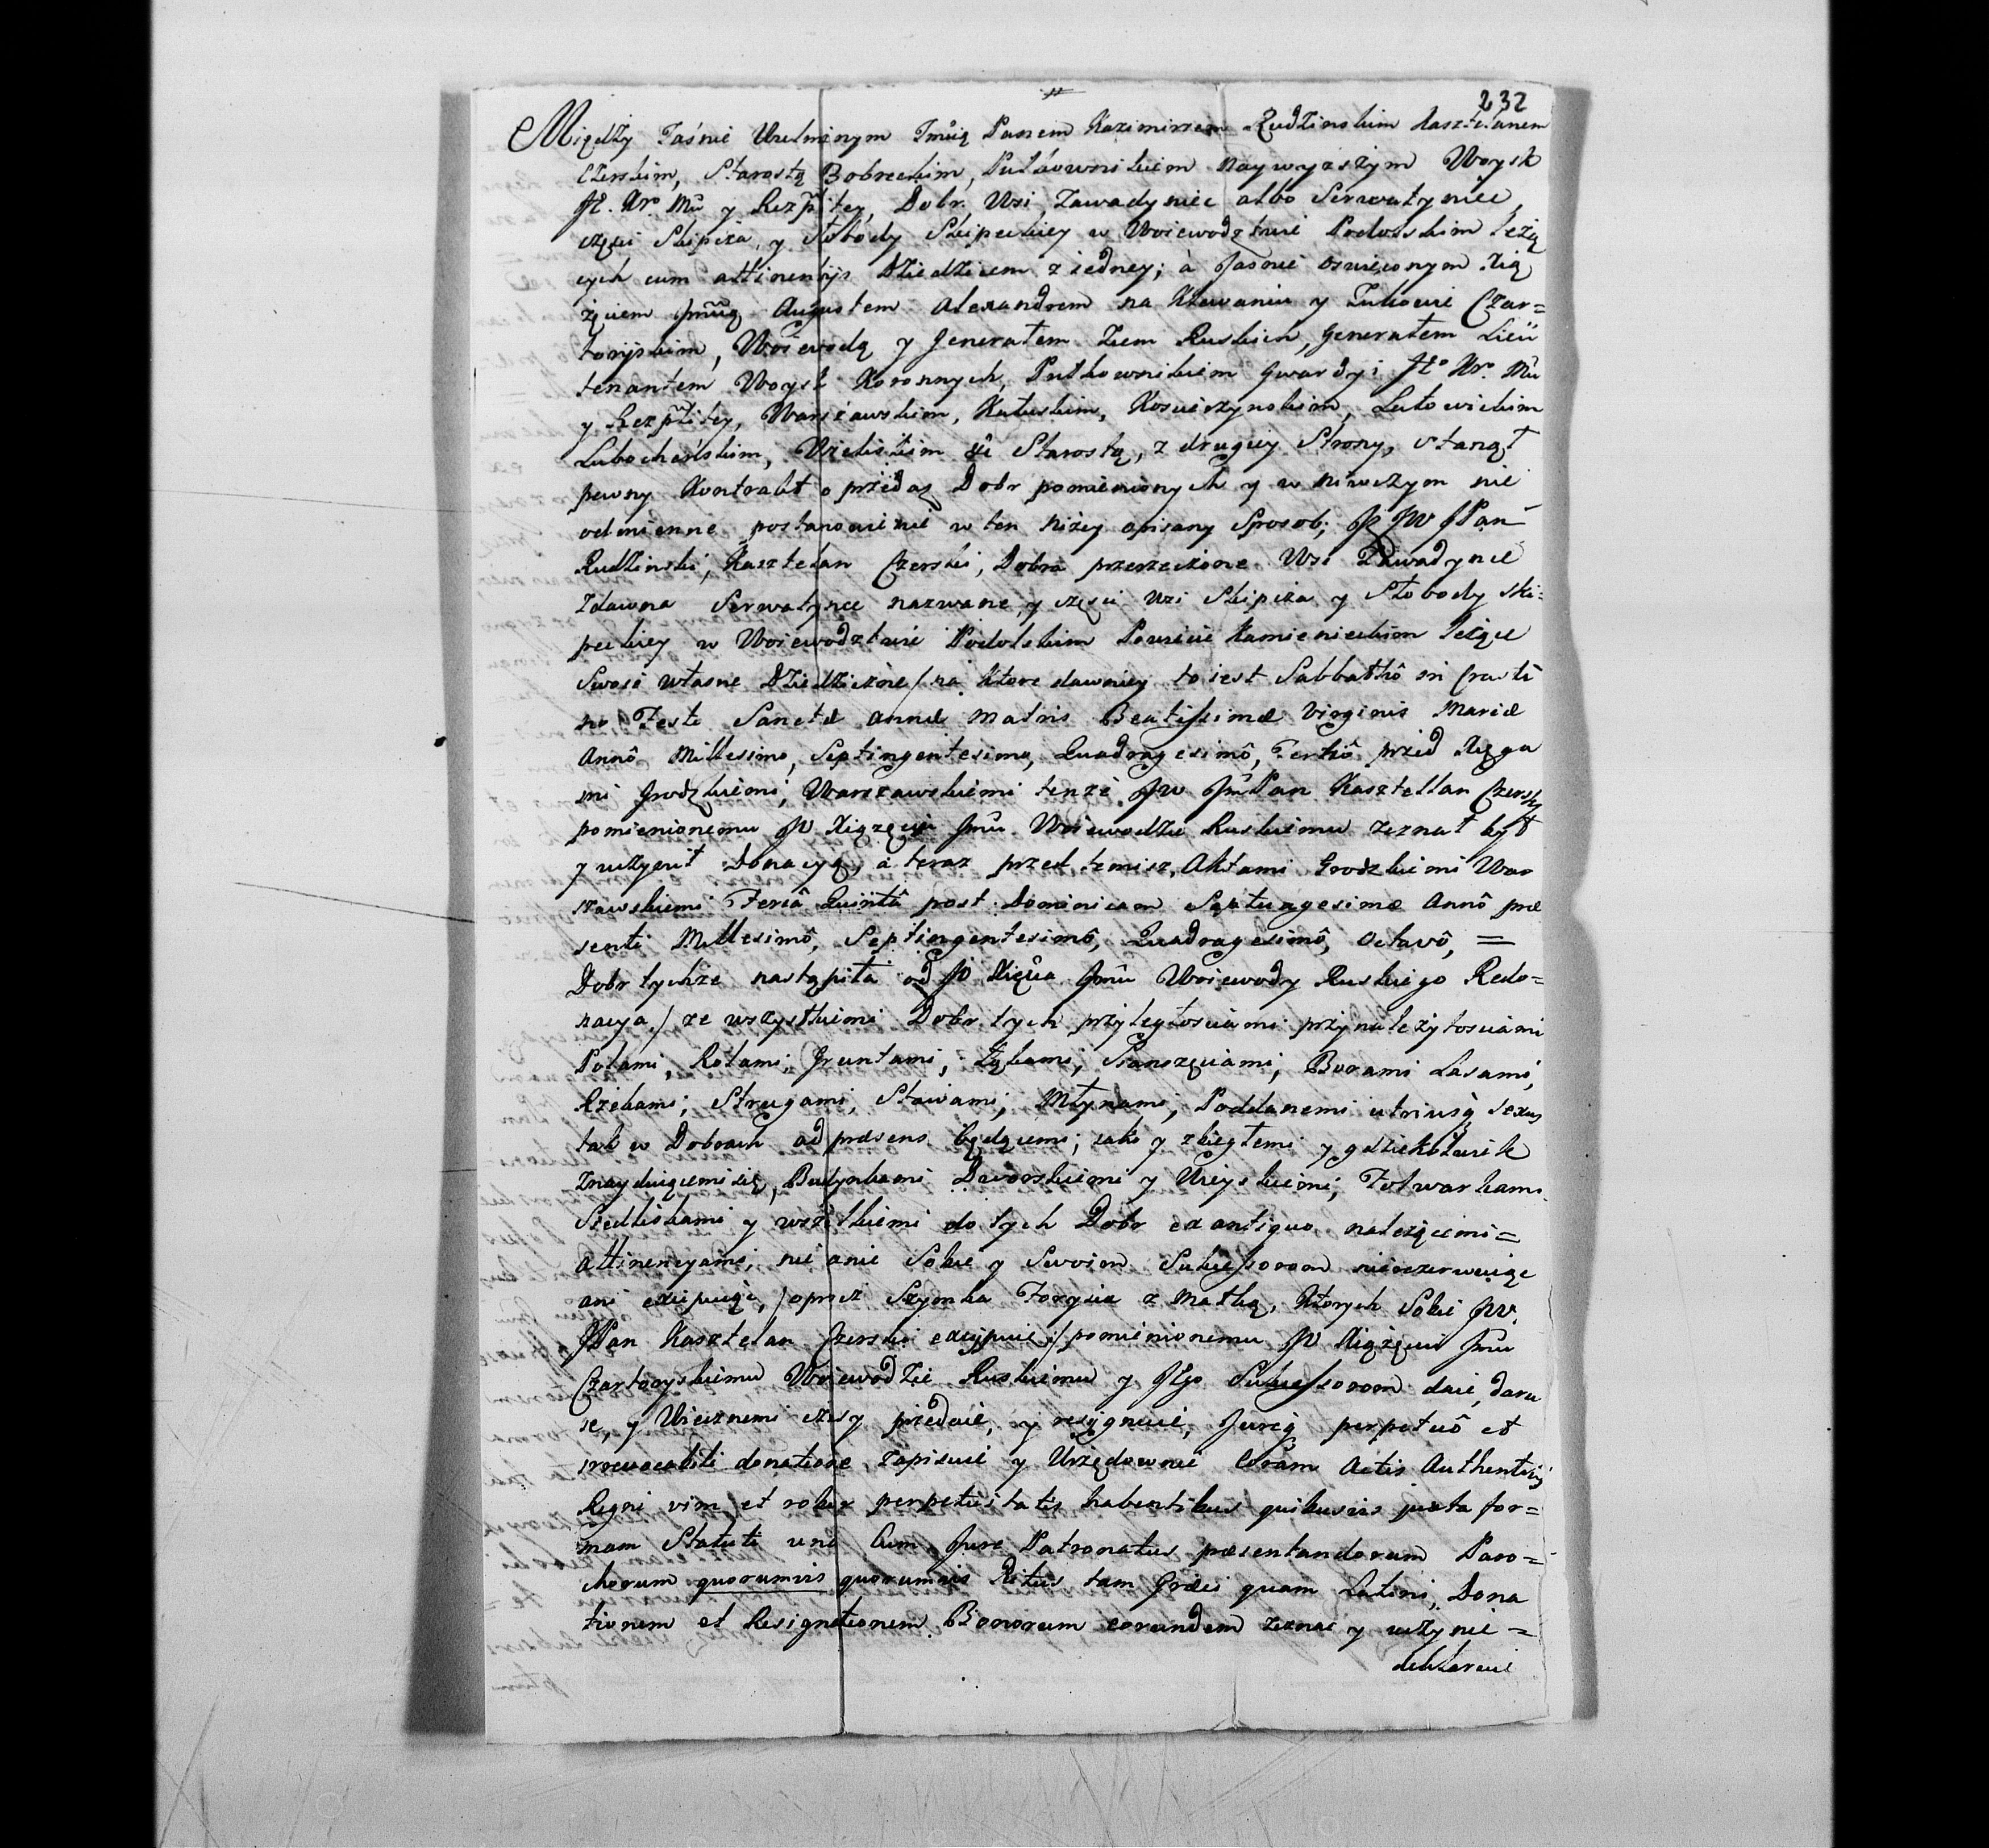 232
Między Jaśnie Wielmożnym Jmcią Panem Kazimirzem Rudzinskim Kasztelanem
Czerskim, Starostą Bobreckim, Pułkownikiem naywyższym Woysk
J. Kr. Mci y Rzptey, Dobr Wsi, Zawadyniec albo Serwatyniec,
części Skipcza, y Słobody Skipeckiey w Woiewodztwie Podolskim leżą
cych cum attinentijs Dziedzicem z iedney; à Jasnie oswieconym Xią
żęciem Jmcią Augustem Alexandrem na Klewaniu y Zukowie Czar=
toryskim, Woiewodą y Generałem Ziem Ruskich, Generałem Lieu
tenantem Woysk Koronnych, Pułkownikiem Gwardyi J. Kr. Mci
y Rzptitey, Warszawskim, Kałuskim, Koscierzynskim, Latowickim
Lubocheńskim, Wieliskim &c Starostą, z drugiey Strony, stanął
pewny Kontrakt o przedaż Dobr pomienionych y w niwczym nie
odmienne postanowienie w ten niżey opisany Sposob; Iż JW JPan
Rudzinski, Kasztelan Czerski, Dobra przerzeczone Wsi Zawadynce
zdawna Serwatynce nazwane, y części Wsi Skipcza y Słobody Ski=
peckiey w Woiewodztwie Podolskim Powiecie Kamienieckim leżące
Swoie własne Dziedziczne / na ktore dawniey to iest Sabbathô in Crasti
no Festi Sanctæ Annæ Matris Beatissimæ Virginis Mariæ
Annô Millesimo, Septingentesimo, Quadragesimô, Tertiô przed Xięga
mi Grodzkiemi, Warszawskiemi tenże JW JmPan Kasztellan Czerski
pomienionemu JO Xiążęciu Jmci Woiewodzie Ruskiemu zeznał był
y uczynił Donacyą, a teraz przed temisz, Aktami Grodzkiemi War
szawskiemi Feriâ Quintâ post Dominicam Septuagesimæ Annô præ
senti Millesimô, Septingentesimô, Quadragesimô, Octavô, =
Dobr tychże nastąpiła od JO Xięcia Jmci Woiewody Ruskiego Redo=
nacya / ze wszystkiemi Dobr tych przyległosciami przynależytosciami
Polami, Rolami, Gruntami, Łąkami, Sianożęciami, Borami Lasami,
Rzekami, Strugami, Stawami, Młynami, Poddanemi utriusq sexus
tak w Dobrach ad præsens będącemi; iako y zbiegłemi y gdziekolwiek
znayduiącemi się, Budynkami Dworskiemi y Wieyskiemi, Folwarkami
Siedliskami y wszytkiemi do tych Dobr ex antiquo należącemi =
attinencyami, nic anie Sobie y Swoim Sukcessorom nierezerwuiąc
ani excipuiąc, / oprocz Szymka Forycia z Matką, ktorych Sobie JW.
JPan Kasztelan Czerski excypuie / pomienionemu JO Xiążęciu Jmci
Czartoryskiemu Woiewodzie Ruskiemu y JEgo Sukcessorom daie, daru
ie, y Wiecznemi czasy przedaie, y resignuie, Jureq perpetuô et
irrevocabili donatione, zapisuie y Urzędownie Coram Actis Authenticis
Regni vim et robur perpetuitatis habentibus quibusvis juxta for=
mam Statuti una Cum Jure Patronatus præsentandorum Paro=
chorum quorumvis quorumvis Ritus tam Græci quam Latini, Dona
tionem et Resignationem Bonorum eorundem zeznac y uczynic =
deklaruie